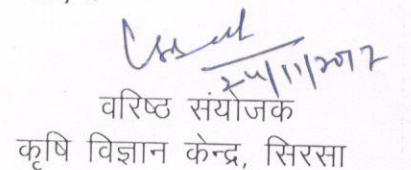 24/11/2017
वरिष्ठ संयोजक
कृषि विज्ञान केन्द्र, सिरसा